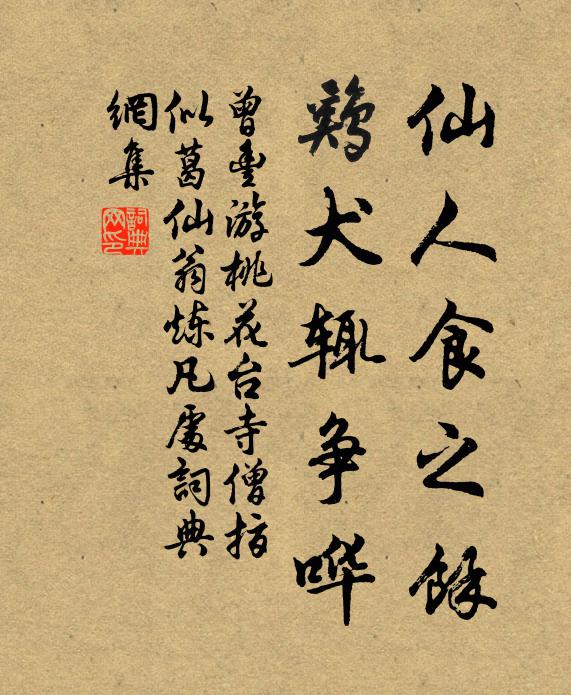 仙人食之餘
鷄犬辄争哗
曾豊游桃花台寺僧指
似葛仙翁炼凡處詞典
網集
詞典网印